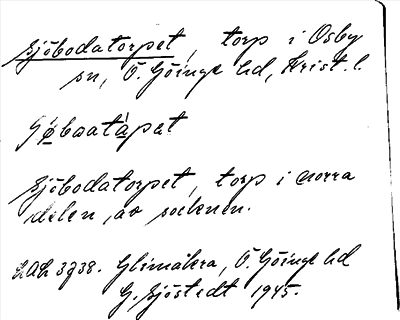 Sjöbodatorpet, torp i Osby
sn, Ö. Göinge hd, Krist. l.
Sjöbodatorpet, torp i norra
delen av socknen.
Glimåkra, Ö. Göinge hd
G. Sjöstedt 1945.